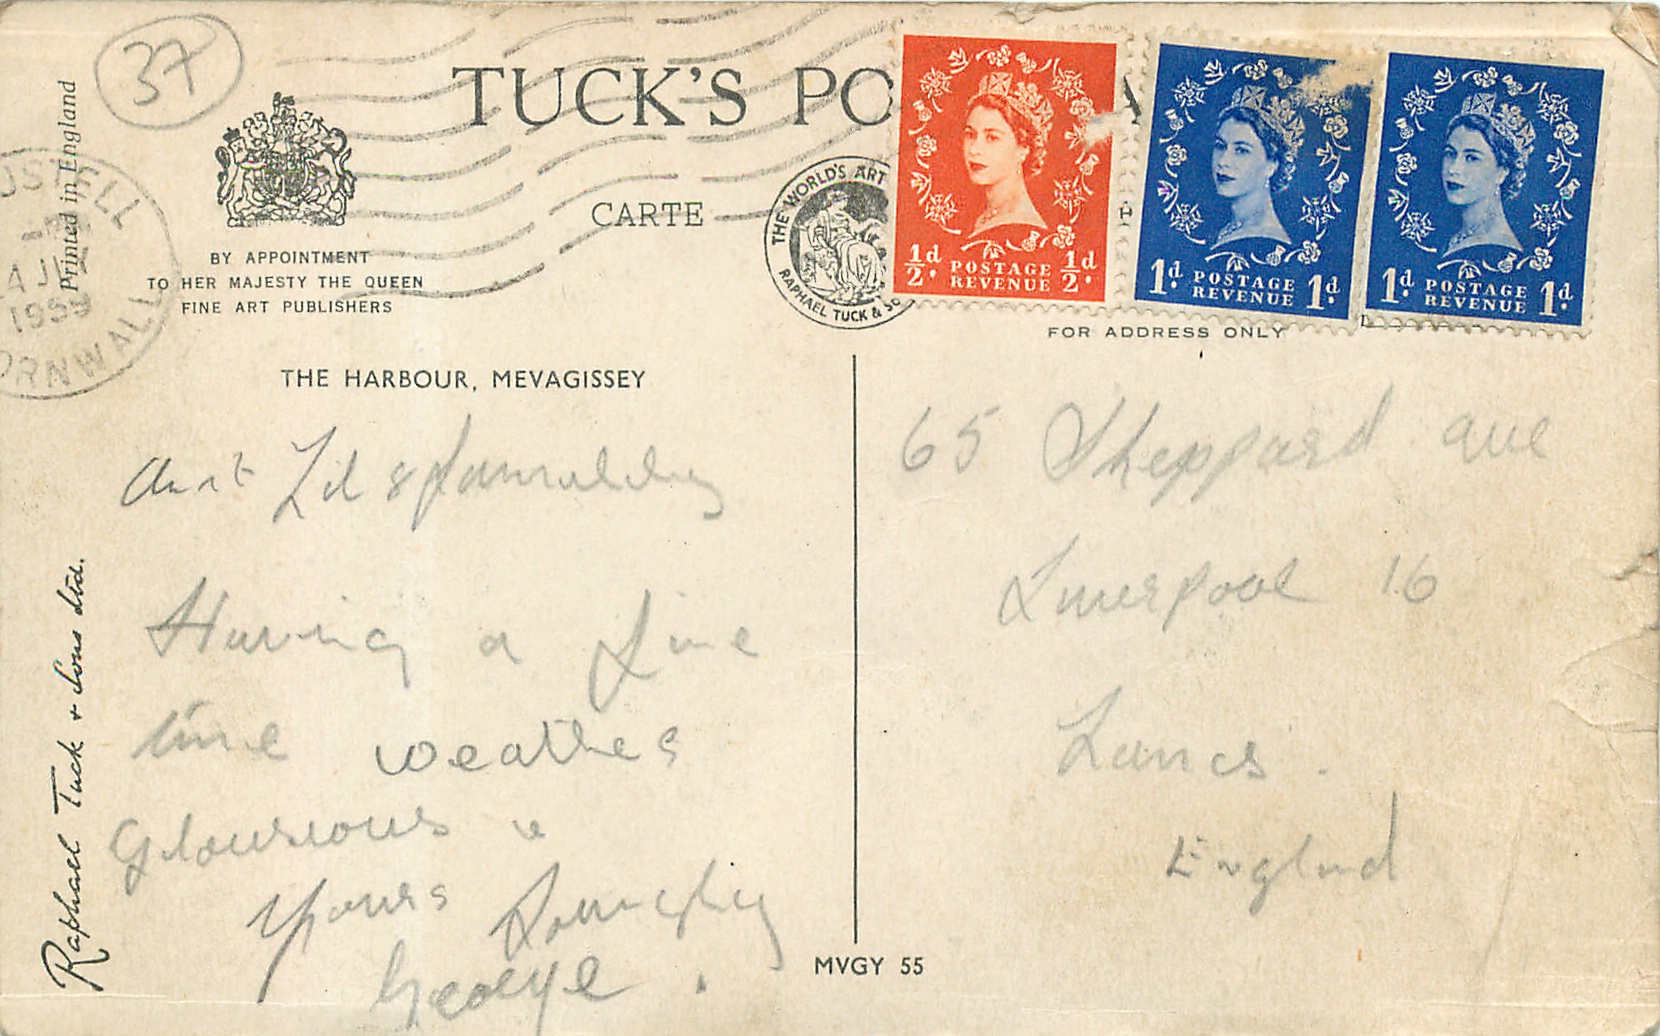 37
Printed in England
TUCK'S PO
CARTE
BY APPOINTMENT
TO HER MAJESTY THE QUEEN
FINE ART PUBLISHERS
USTELL
4 JLY
1959
ORNWALL
THE WORLD'S ART
RAPHAEL TUCK & SO
½d. POSTAGE REVENUE ½d.
1d. POSTAGE REVENUE 1d.
1d. POSTAGE REVENUE 1d.
FOR ADDRESS ONLY
THE HARBOUR, MEVAGISSEY
Aunt Lil &
Having a fine
time weather
Glourious
Yours
George.
65 Sheppard ave
Liverpool 16
Lancs.
England
Raphael Tuck & Sons Ltd.
MVGY 55